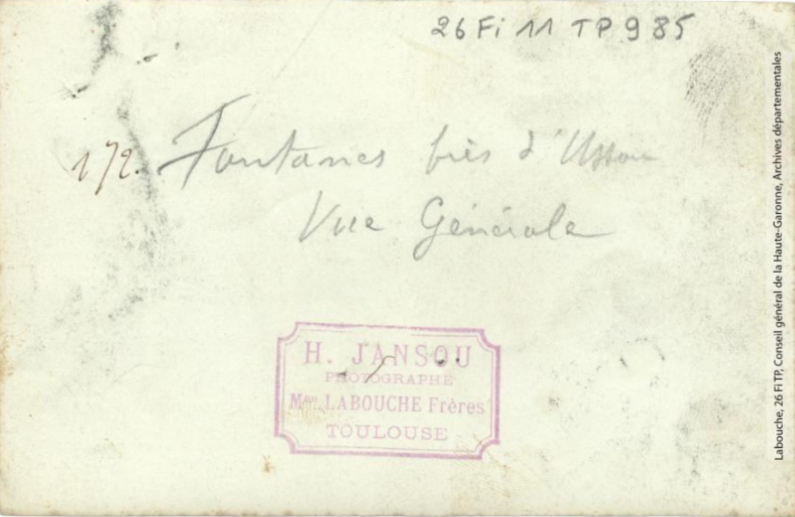 26 Fi 11 TP 985
172. Fontanes près d'Usson
Vue Générale
H. JANSOU
PHOTOGRAPHE
Mon LABOUCHE Frères
TOULOUSE
Labouche, 26 FI TP, Conseil général de la Haute-Garonne, Archives départementales